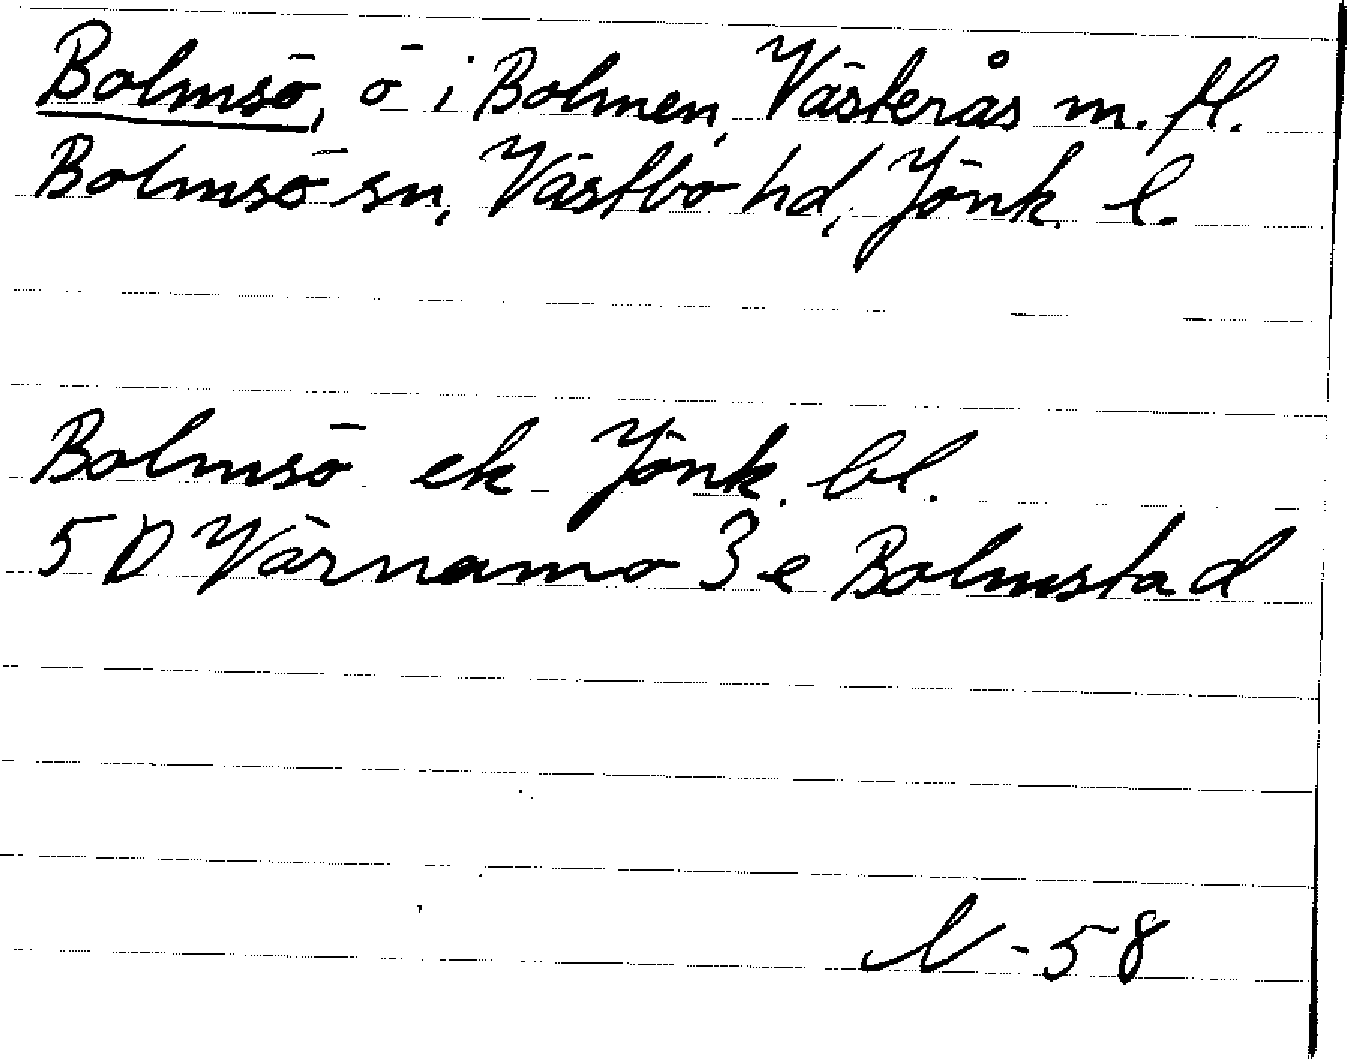 Bolmsö, ö i Bolmen, Västerås m. fl.
Bolmsö sn, Västbo hd, Jönk. l.
Bolmsö ek Jönk. bl.
5 D Värnamo 3 e Bolmstad
N - 58